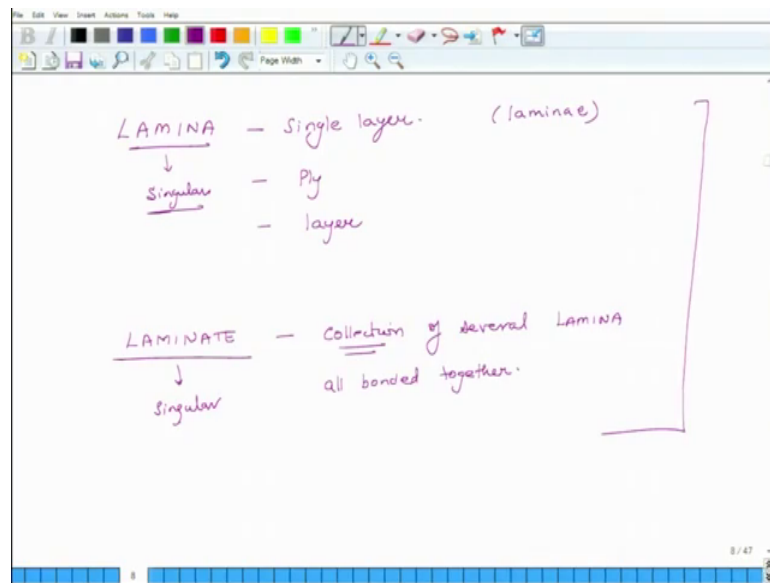 File Edit View Insert Actions Tools Help
B I
Page Width
LAMINA – Single layer. (laminae)
Singular – Ply
– layer
LAMINATE – Collection of several LAMINA
Singular all bonded together.
8/47
8